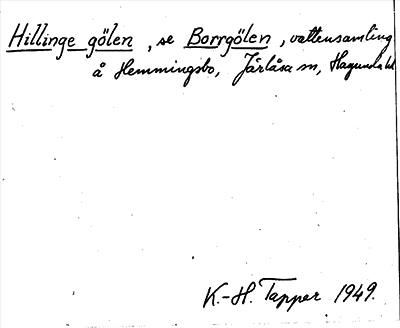 Hillinge gölen, se Borrgölen, vattensamling
å Hemmingsbo, Järlåsa sn, Hagunda hd
K.-H. Tapper 1949.